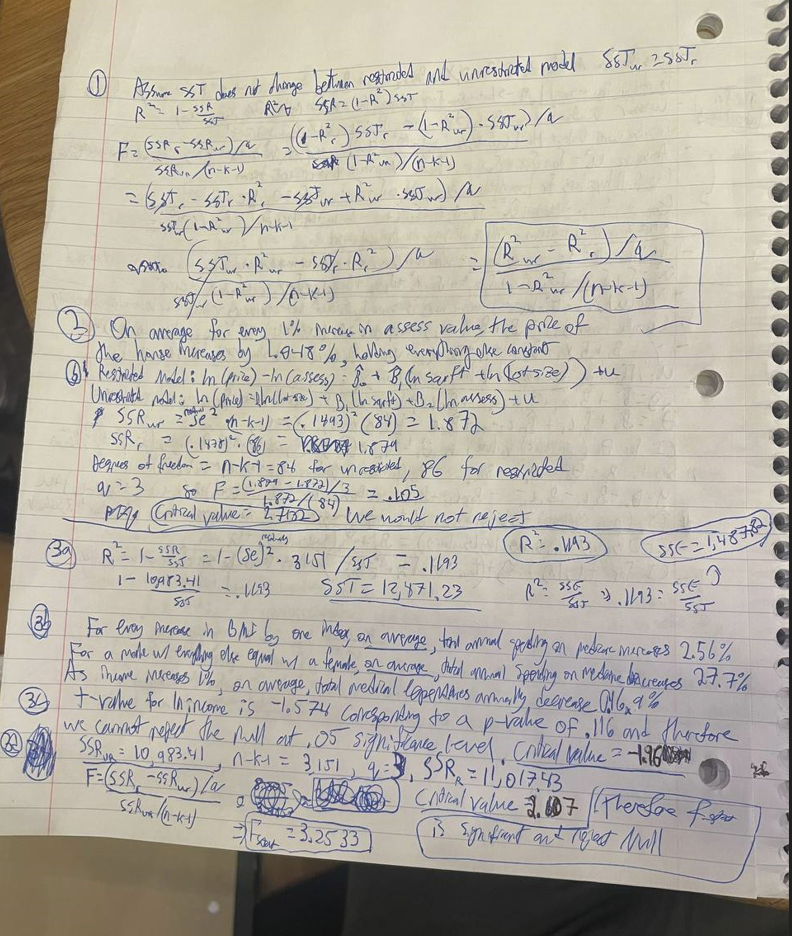 ① Assume SST does not change between restricted and unrestricted model SST_ur = SST_r
R² = 1 - SSR/SST SSR = (1-R²) SST
F = (SSR_r - SSR_ur)/q / SSR_ur/(n-k-1) = ((1-R²_r) SST_r - (1-R²_ur) · SST_ur)/q / (1-R²_ur)/(n-k-1)
= (SST_r - SST_r · R²_r - SST_ur + R²_ur · SST_ur)/q / SST_ur(1-R²_ur)/n-k-1
(SST_ur · R²_ur - SST_r · R²_r)/q / SST_ur(1-R²_ur)/(n-k-1) = (R²_ur - R²_r)/q / 1-R²_ur/(n-k-1)
② On average for every 1% increase in assess value, the price of
the house increases by 1.048%, holding everything else constant
ⓑ Restricted model: ln(price) - ln(assess) = β̂₀ + β₁(ln sqrft + ln(lotsize)) + u
Unrestricted model: ln(price) = ln(lotsize) + β₁(ln sqrft) + β₂(ln assess) + u
SSR_ur = se² (n-k-1) = (.1493)² (84) = 1.872
SSR_r = (.1478)² · (86) = 1.879
Degrees of freedom = n-k-1 = 84 for unrestricted, 86 for restricted
q = 3 so F = (1.879 - 1.872)/3 / 1.872/(84) = .105
Critical value = 2.7132 We would not reject
3a R² = 1 - SSR/SST = 1 - (se)² · 3151 / SST = .1193 R² = .1193 SSE = 1,487.82
1 - 10983.41/SST = .1193 SST = 12,471.23 R² = SSE/SST ⇒ .1193 = SSE/SST
3b For every increase in BMI by one index, on average, total annual spending on medicine increases 2.56%
For a male w/ everything else equal w/ a female, on average, total annual spending on medicine decreases 27.7%
As income increases 1%, on average, total medical expenditures annually decrease
3c t-value for lnincome is -1.574 corresponding to a p-value of .116 and therefore
we cannot reject the null at .05 significance level. Critical value = -1.96
3d SSR_ur = 10,983.41, n-k-1 = 3,151, q = 3, SSR_R = 11,017.43
F = (SSR_r - SSR_ur)/q / SSR_ur/(n-k-1) Critical value = 2.607 Therefore
⇒ F = 3.2533 is significant and reject Null